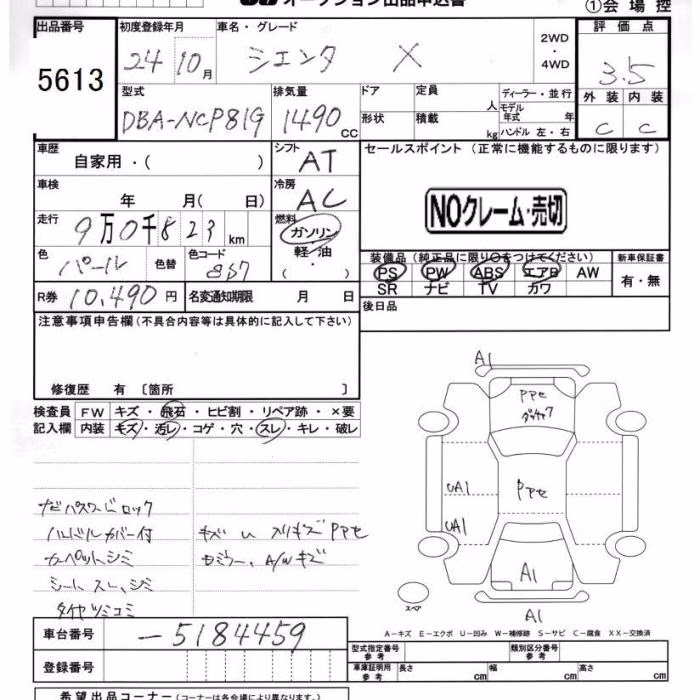 オークション出品申込書
①会場控
出品番号 初度登録年月 車名・グレード 2WD・4WD 評価点
5613 24年10月 シエンタ X 3.5
型式 排気量 ドア 定員 人 ディーラー・並行 外装 内装
DBA-NCP81G 1490cc 形状 積載 kg モデル年式 年 ハンドル 左・右 C C
車歴 自家用・( ) シフト AT セールスポイント(正常に機能するものに限ります)
車検 年 月( 日) 冷房 AC
NOクレーム・売切
走行 9万0千823km 燃料 ガソリン・軽油・( )
色 パール 色替 色コード
装備品(純正品に限り○をつけてください) 新車保証書
PS PW ABS エアB AW 有・無
SR ナビ TV カワ
R券 10,490円 名変通知期限 月 日 後日品
注意事項申告欄(不具合内容等は具体的に記入して下さい)
修復歴 有〔箇所 〕
検査員 FW キズ・飛石・ヒビ割・リペア跡・×要
記入欄 内装 キズ・汚レ・コゲ・穴・スレ・キレ・破レ
ナビパスワードロック
ハンドルカバー付
カーペットシミ
シートスレ、シミ
タイヤツミコミ
キズ U スリキズ PPセ
A/Wキズ
A1
PPセ
UA1 PPセ
UA1
A1
スペア
A1
A-キズ E-エクボ U-凹み W-補修跡 S-サビ C-腐食 XX-交換済
車台番号 -5184459
登録番号
型式指定番号 参考 類別区分番号 参考
車庫証明用 参考 長さ cm 幅 cm 高さ cm
希望出品コーナー(コーナーは各会場により異なります)